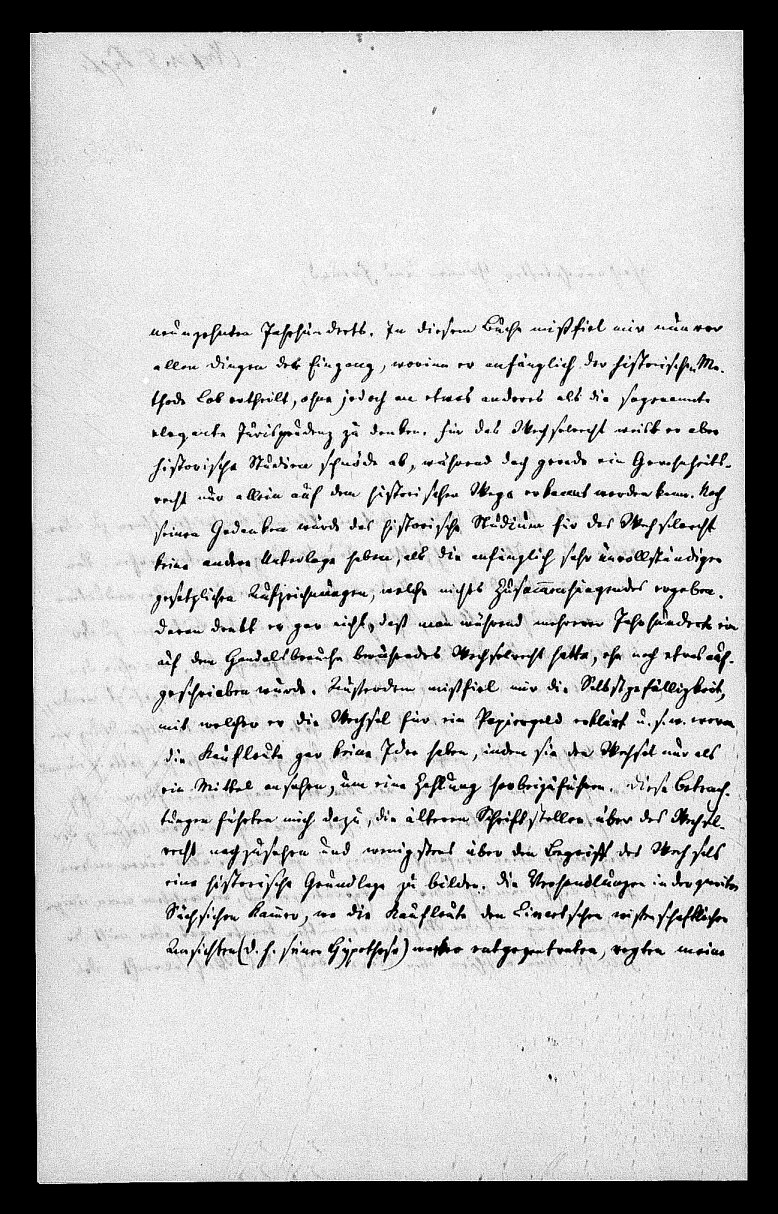 neunzehnten Jahrhunderts. In diesem Buche mißfiel mir nun vor
allen Dingen der Eingang, worinn er anfänglich der historischen Me-
thode Lob ertheilt, ohne jedoch an etwas anderes als die sogenannte
elegante Jurisprudenz zu denken. Für das Wechselrecht weist er aber
historische Studien schnöde ab, während doch gerade ein Gewohnheits-
recht nur allein auf dem historischen Wege erkannt werden kann. Nach
seinen Gedanken würde das historische Studium für das Wechselrecht
keine andere Unterlage haben, als die anfänglich sehr unvollständigen
gesetzlichen Aufzeichnungen, welche nichts Zusammenhängendes ergeben.
Daran denkt er gar nicht, daß man während mehrerer Jahrhunderte ein
auf dem Handelsbrauche beruhendes Wechselrecht hatte, ehe noch etwas auf-
geschrieben wurde. Ausserdem mißfiel mir die Selbstgefälligkeit,
mit welcher er die Wechsel für ein Papiergeld erklärt u. s. w. wovon
die Kaufleute gar keine Idee haben, indem sie den Wechsel nur als
ein Mittel ansehen, um eine Zahlung herbeizuführen. Diese Betrach-
tungen führten mich dazu, die älteren Schriftsteller über das Wechsel-
recht nachzusehen und wenigstens über den Begriff des Wechsels
eine historische Grundlage zu bilden. Die Verhandlungen in der zweiten
Sächsichen Kammer, wo die Kaufleute den Einertschen wissenschaftlichen
Ansichten (d. h. seiner Hypothese) entgegentraten, regten meine